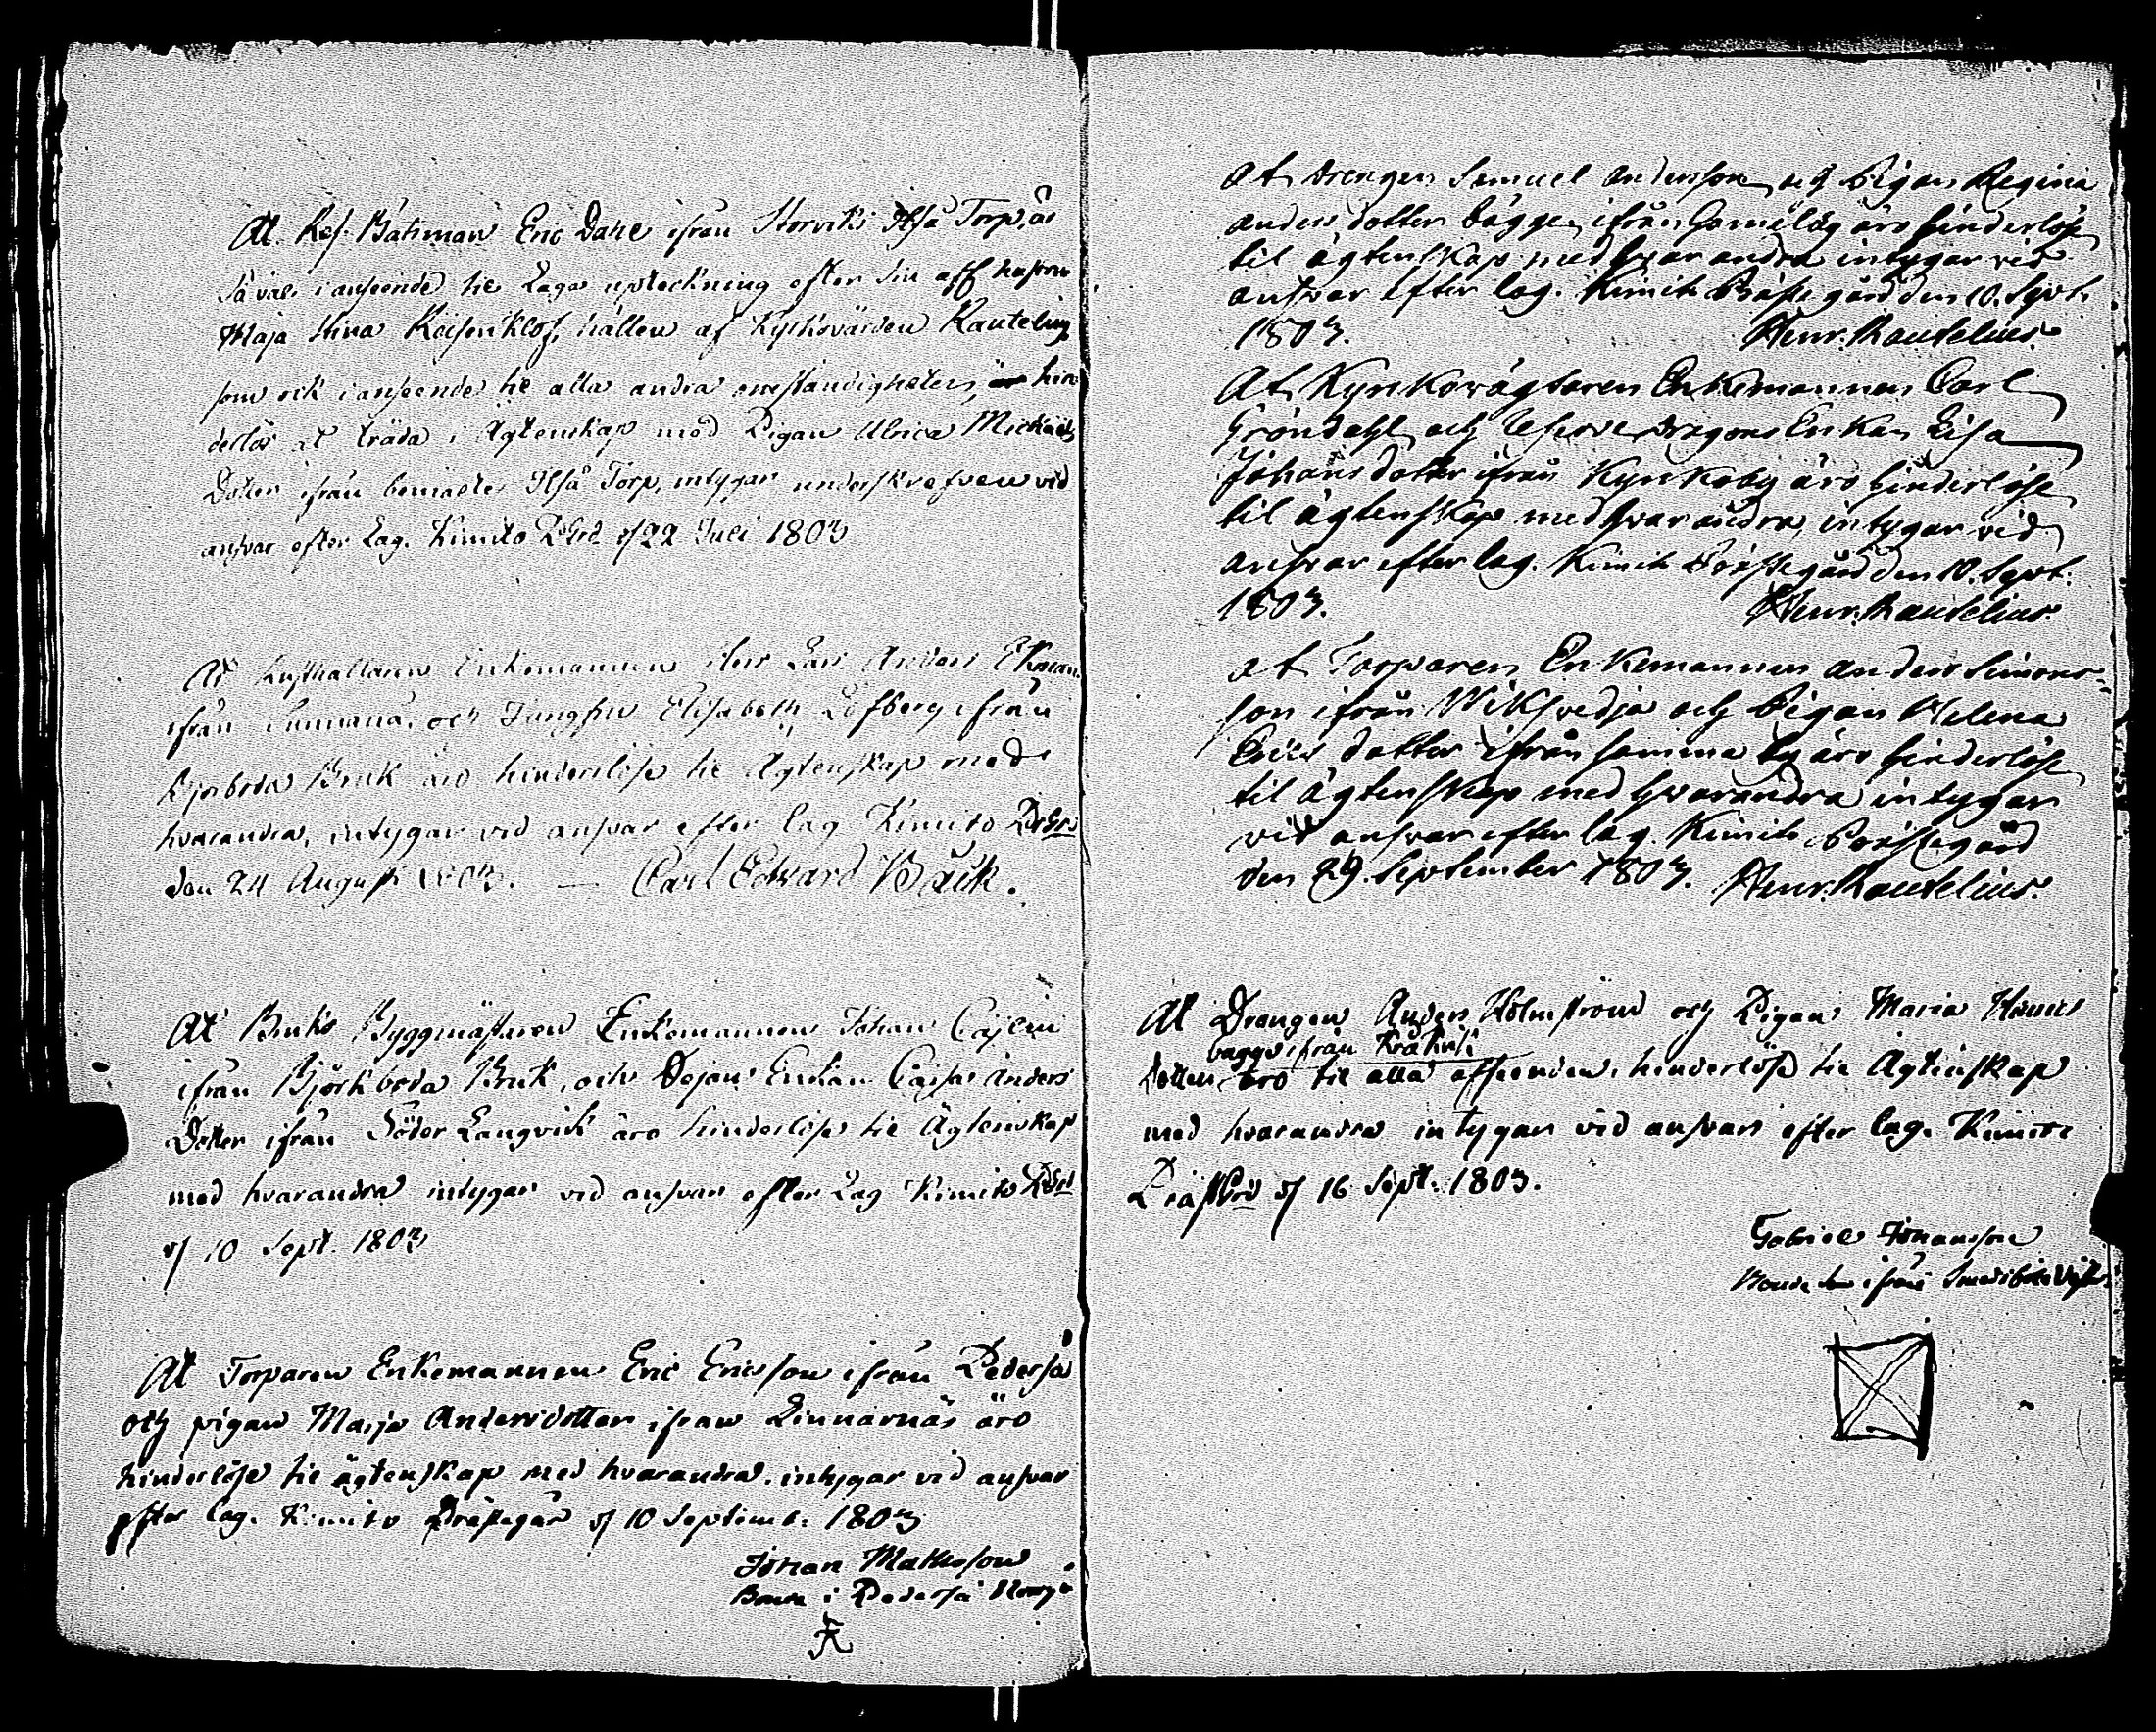 At Res. Båtsman Eric Dahl ifrån Storviks Ilså Torp, är
så väl i anseende til Laga upteckning efter sin afl. hustru
Maja Stina hållen af Kyrkovärden Rautelius,
som ock i anseende til alla andra omständigheter, hin
derlös at träda i Ägtenskap med Pigan Ulrica Mickaels
Dotter ifrån bemälte Ilså Torp, intygar underskrefven vid
ansvar efter Lag. Kimito d. 22 Juli 1803
At Rusthållaren Enkemannen Herr Lars Anders Ekman
ifrån och Jungfru Elisabeth Löfberg ifrån
Björkboda Bruk äro hinderslöse til Ägtenskap med
hvarandra, intygar vid ansvar efter lag Kimito
den 24 August 1803. — Carl Edvard Bäck.
At Bruks Byggmästaren Enkemannen Johan Cajlen
ifrån Björkboda Bruk, och Enkan Cajsa Anders
Dotter ifrån Söder Langvik äro hinderlöse til Ägtenskap
med hvarandra intygar vid ansvar efter Lag Kimito
d. 10 Sept. 1803
At Torparen Enkemannen Eric Ericsson ifrån Pederså
och pigan Maija Andersdotter ifrån Pinnarnäs äro
hinderlöse til ägtenskap med hvarandra, intygar vid ansvar
efter lag. Kimito Prästegår d. 10 Septemb. 1803
Johan Mattsson
Bonde i Pederså
At Drengen Samuel Andersson och Pigan Regina
Anders dotter bägge ifrån Gamelby äro hinderlöse
til ägtenskap med hvarandra intygar vid
ansvar efter lag. Kimito Prästegård den 10. Sept.
1803. Henr: Rautelius.
At Kyrkovägtaren Enkemannen Carl
Gröndahl och Reserve Dragons Enkan Lisa
Johansdotter ifrån Kyrkoby äro hinderlöse
til ägtenskap med hvarandra, intygar vid
ansvar efter lag. Kimito Prästegård den 10. Sept.
1803. Henr: Rautelius.
At Torparen Enkemannen Anders Simons-
son ifrån Wiksvedja och Pigan Helena
Erics dotter ifrån samma by äro hinderlöse
til ägtenskap med hvarandra intygar
vid ansvar efter lag. Kimito Prästegård
den 29. September 1803. Henr: Rautelius.
At Drengen Anders Holmström och Pigan Maria Henrics
bägge ifrån Kråkvik
Dotter äro til alla afseenden, hinderlöse til Ägtenskap
med hvarandra intygar vid ansvar efter lag. Kimito
d. 16 Sept. 1803.
Gabriel Johansson
Bonde Son ifrån